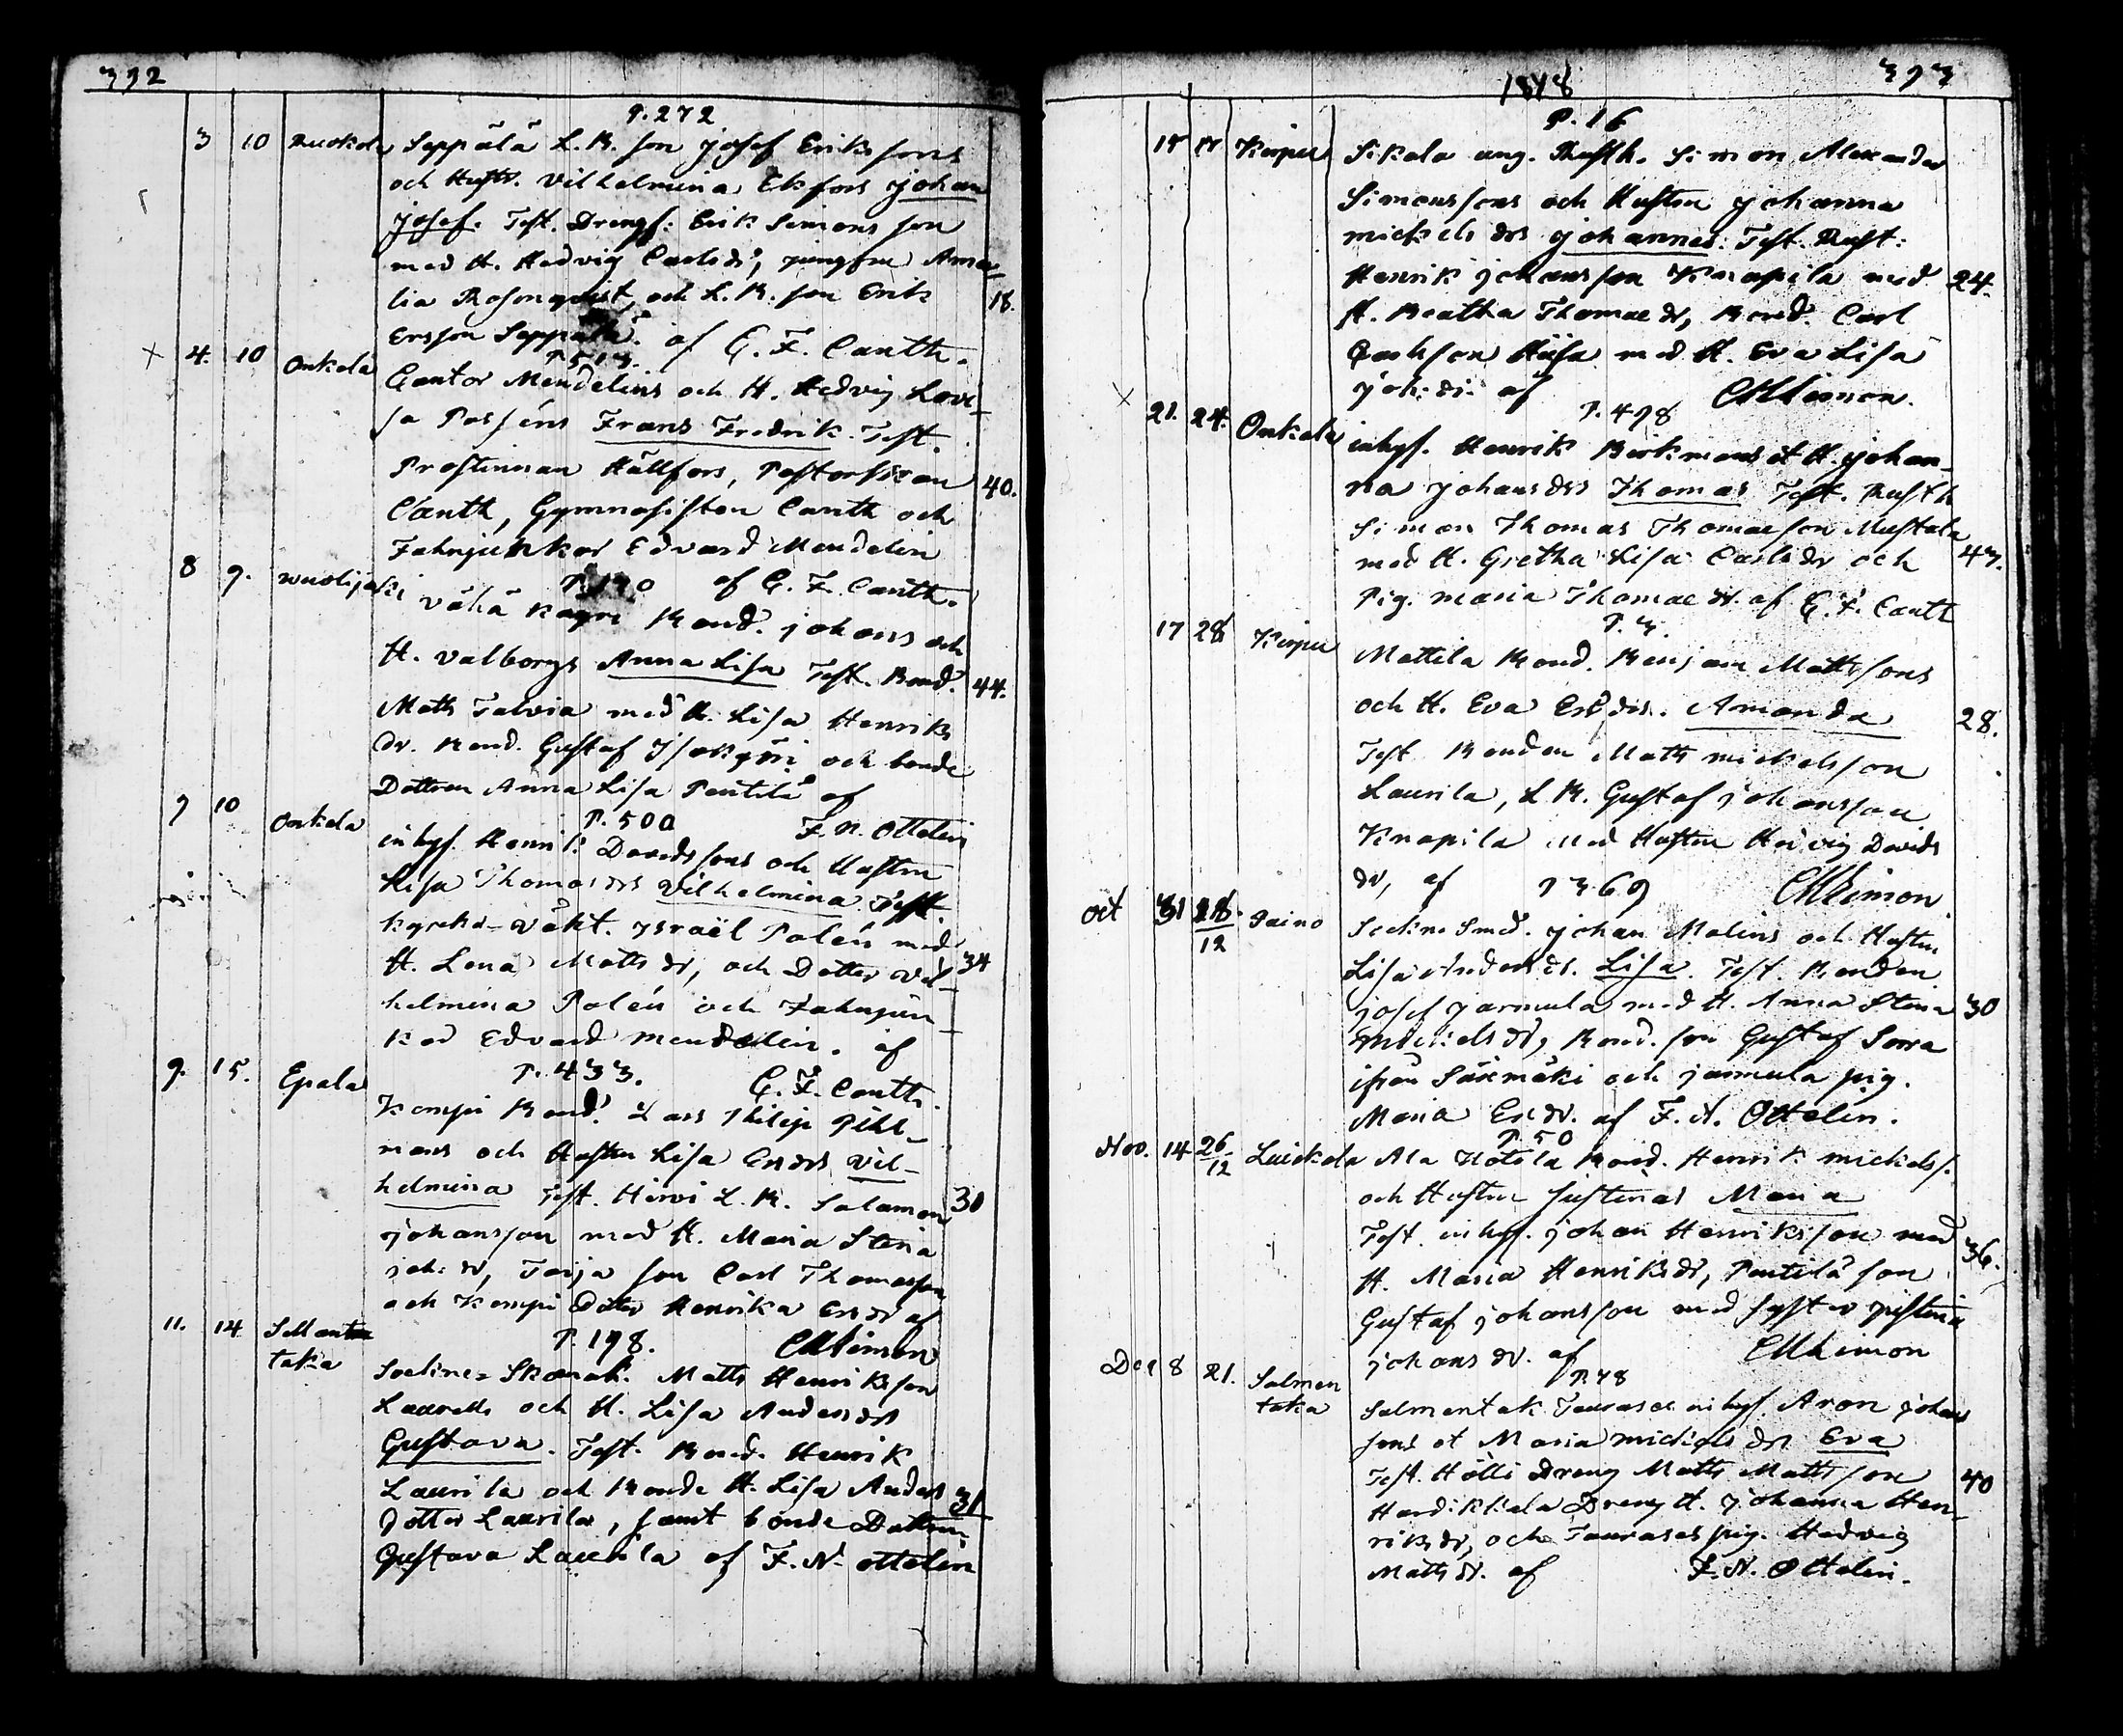 392
P. 272
3 10 Ruokola Seppälä L. B. son Josef Eriks sons
och Hustr. Vilhelmina Ekfors Johan
Josef. Test. Drengs: Erik Simons son
med H. Hedvig Carlsdr, jungfru Ama-
lia Rosenqvist, och L. B. son Erik 18.
Ersson Seppälä. af G. F. Canth.
P. 513.
4. 10 Onkela Cantor Mendelins och H. Hedvig Lovi-
sa Posséns Frans Fredrik. Test.
Prostinnan Hällfors, Pastorskan 40.
Canth, Gymnasisten Canth och
Fahnjunkar Edvard Mendelin
P. 190 af G. F. Canth.
8 9. Wuolijoki Vähä Kayri Bond. Johans och
H. Valborgs Anna Lisa Test. Bond. 44.
Matts Talvia med H. Lisa Henriks
dr. Bond. Gustaf Isokäÿri och bonde
Dottren Anna Lisa Pentilä af
P. 500 F. N. Ottelin
9 10 Onkela inhys. Henrik Davidssons och Hustru
Lisa Thomasdrs Vilhelmina Test.
kyrko-väkt. Israël Polén med
H. Lena Mattsdr, och Dotter Vil- 34
helmina Polén och Fahnjun-
kar Edvard Mendelin. af
P. 433. G. F. Canth.
9. 15. Epala Kempi Bond. Lars Philip Pihl-
mans och Hustru Lisa Ersdrs Vil-
helmina Test. Hirvi L. B. Salomon 30
Johansson med H. Maria Stina
Joh: dr, Torja son Carl Thomasson
och Kempi Dotter Henrika Ersdr af
P. 198. CMLimon
11. 14 Salmen
taka
Sockne-Skomak. Matts Henriksson
Laurells och H. Lisa Andersdrs
Gustava. Test. Bond. Henrik
Laurila och Bonde H. Lisa Anders 31
Dotter Laurila, samt bonde Dottren
Gustava Laurila af F. N. Ottelin
1848 393
P. 16
Kurjen Sikala ung. Rusth. Simon Alexander
Simonssons och Hustru Johanna
Mickelsdrs Johannes. Test. Rust:
Henrik Johansson Knapila med 24.
H. Beatha Thomae dr, Bond. Carl
Carlsson Hiisa med H. Eva Lisa
Joh: dr: af CMLimon.
P. 498
21. 24. Onkela inhys. Henrik Birkmans et H. Johan-
na Johansdrs Thomas Test. Rusth
Simon Thomas Thomaeson Mustala
med H. Gretha Lisa Carlsdr och 43.
Pig. Maria Thomae dr. af G. F. Canth
P. 3.
17 28 Kurjen Mattila Bond. Benjam Mattssons
och H. Eva Ersdrs. Amanda 28.
Test Bonden Matts Mickelsson
Laurila, L B. Gustaf Johansson
Knapila med Hustru Hedvig Davids
dr, af CMLimon.
P 369
Oct 31 28/12 Paino Sockne Smed. Johan Malins och Hustru
Lisa Andersdrs. Lisa. Test. Bonden
Josef Jarmula med H. Anna Stina 30
Mickelsdr, Bond. son Gustaf Sorra
ifrån Särkmäki och Jarmula pig.
Maria Ersdr. af F. N. Ottelin.
P. 50
Nov. 14 26/12 Luickola Ala Hotila Bond. Henrik Mickelss.
och Hustru Justinas Maria
Test. inhys. Johan Henriksson med
H. Maria Henriksdr, Pentilä son 36.
Gustaf Johansson med syster Justina
Johans dr. af CMLimon
P. 78
Dec 8 21. Salmen
taka
Salmentak. Taurases inhys. Aron Johans
sons et Maria Mickels drs Eva
Test. Hölli Dreng Matts Mattsson 40
Hardikkala Dreng H. Johanna Hen-
riksdr, och Taurases pig. Hedvig
Matts dr. af F. N. Ottelin.